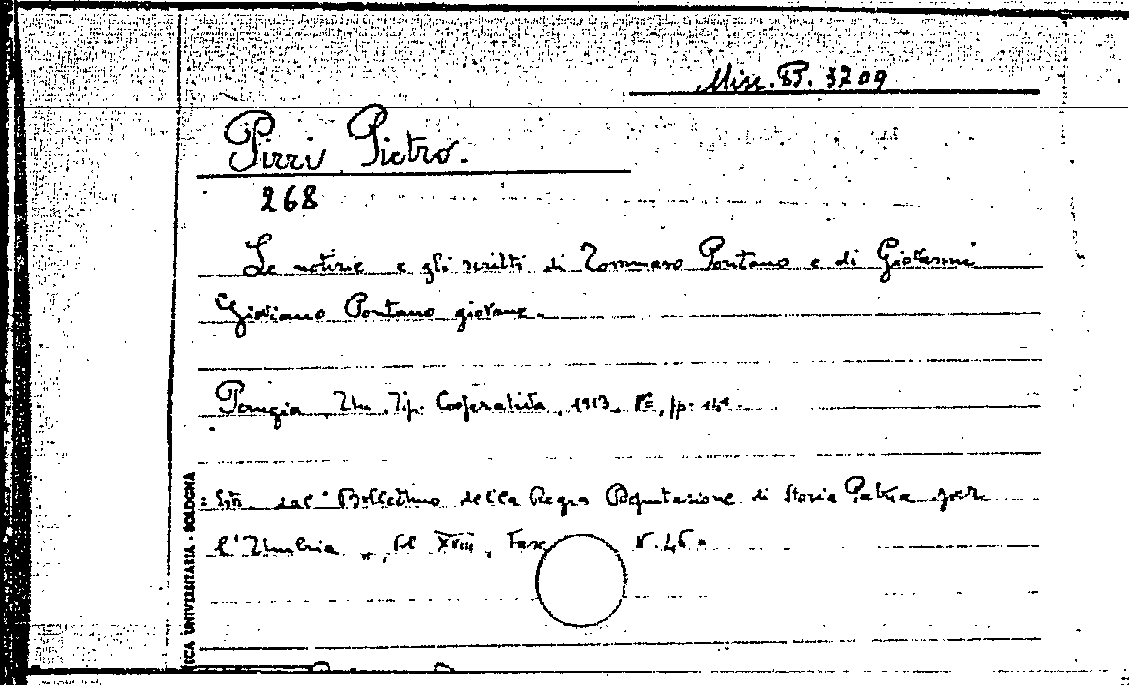 Misc. B. 3709
Pirri Pietro.
268
Le notizie e gli scritti di Tommaso Pontano e di Giovanni
Gioviano Pontano giovane.
Perugia, Un. Tip. Cooperativa, 1913,
Estr. dal "Bollettino della Regia Deputazione di Storia Patria per
l'Umbria", Vol XVIII, Fasc
TECA UNIVERSITARIA - BOLOGNA